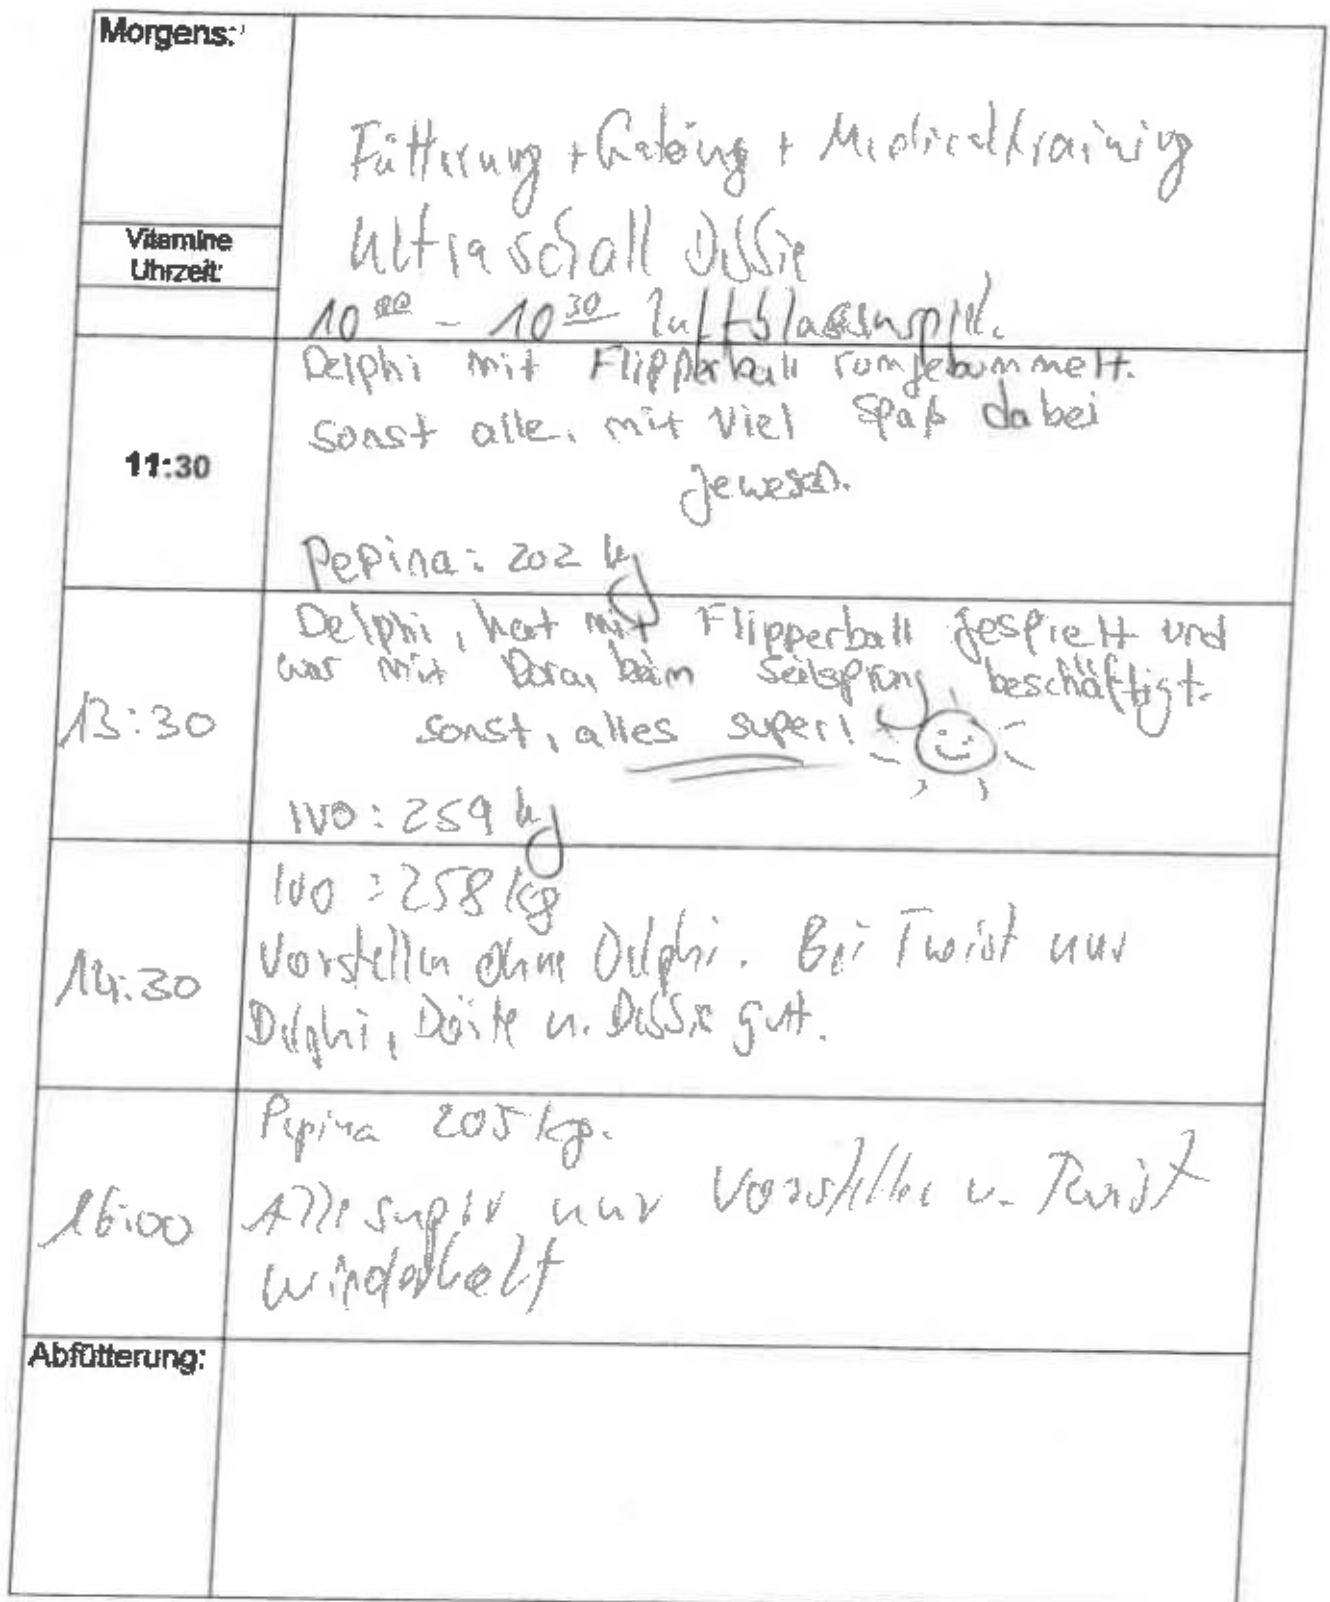 Morgens:
Fütterung + Gating + Medicaltraining
Ultraschall Dessie
Vitamine
Uhrzeit:
10 00 - 10 30 Luftblasenspiel.
Delphi mit Flipperball rumgebummelt.
sonst alle, mit viel Spaß dabei
11:30
gewesen.
Pepina: 202 kg
Delphi, hat mit Flipperball gespielt und
war mit Dora, beim Seilsprung beschäftigt.
13:30
sonst, alles super!
IVO: 259 kg
IVO = 258 kg
Vorstellen ohne Delphi. Bei Twist nur
14:30
Delphi, Dörte u. Dessie gut.
Pepina 205 kg.
16:00
Alle super nur Vorstellen u. Twist
wiederholt
Abfütterung: